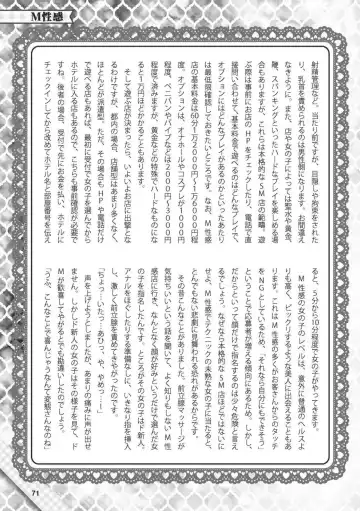 M性感
射精管理など。当たり前ですが、目隠しや拘束された
り、乳首を責められるのは男性側になります。お間違え
なきように。また、店や女の子によっては聖水や黄金、
鞭、スパンキングといったハードなプレイを楽しめる場
合もありますが、これらは本格的なSM店の範疇。遊
ぶ際は事前にお店のHPをチェックしたり、電話で直
接問い合わせて「基本料金で遊べるのはどんなプレイで
オプションにはどんなプレイがあるのか」といったあたり
は最低限確認しておきたいところです。なお、M性感
店の基本料金は60分1万2000円〜1万6000円程
度。オプションは、オナホールやコスプレなら1000円
程度、ペニバンやバイブなどは2000円〜3000円
程度で済みますが、黄金などの特殊でハードなものにな
ると1万円ほどかかることもあります。
そして遊ぶ店が決まったら、いよいよお店に出撃とな
るわけですが、都内の場合、店舗型はあまり多くなく、
ほとんどが派遣型。ただ、その場合もHPや電話だけ
で遊べる店もあれば、最初に受付で女の子を選んでから
ホテルに入る店もあるので、こちらも事前確認が必要で
すね。後者の場合、受付で先にお金を払い、ホテルに
チェックインしてから改めてホテル名と部屋番号を伝え
ると、5分から10分程度で女の子がやってきます。
M性感の女の子のレベルは、意外に普通のヘルスよ
りも高く、ビックリするような美人に出会えることもあ
ります。これはM性感の多くがお客さんからのタッチ
をNGとしているため、「それなら自分にもできそう」
ということで応募者が増える傾向にあるため。しかし、
だからといって顔だけで指名するのは少々危険と言え
るでしょう。なぜなら本格的なSM店ほどではないに
せよ、M性感でテクニックの未熟な女の子に当たると、
とんでもない悲劇に見舞われる恐れがあるからです。
その昔こんなことがありました。前立腺マッサージが
気持ちいいという話を聞いて、よく知りもしないM性
感店に行き、なんとなく顔が好みというだけで選んだ女
の子を指名したんです。ところがその女の子は新人。
アナルをほぐしたりする準備なしに、いきなり指を挿入
し、激しく前立腺を責めてきやがったのです。
「ちょっ…いたっ…あひっ…や、やめっ…！」
声を上げようとしましたが、あまりの痛みに声が出せ
ません。しかしその新人の女の子はその様子を見て、ド
Mが歓喜してやがるとでも勘違いしたのでしょう。
「うふ、こんなことで喜んじゃうなんて変態さんなのね」
71